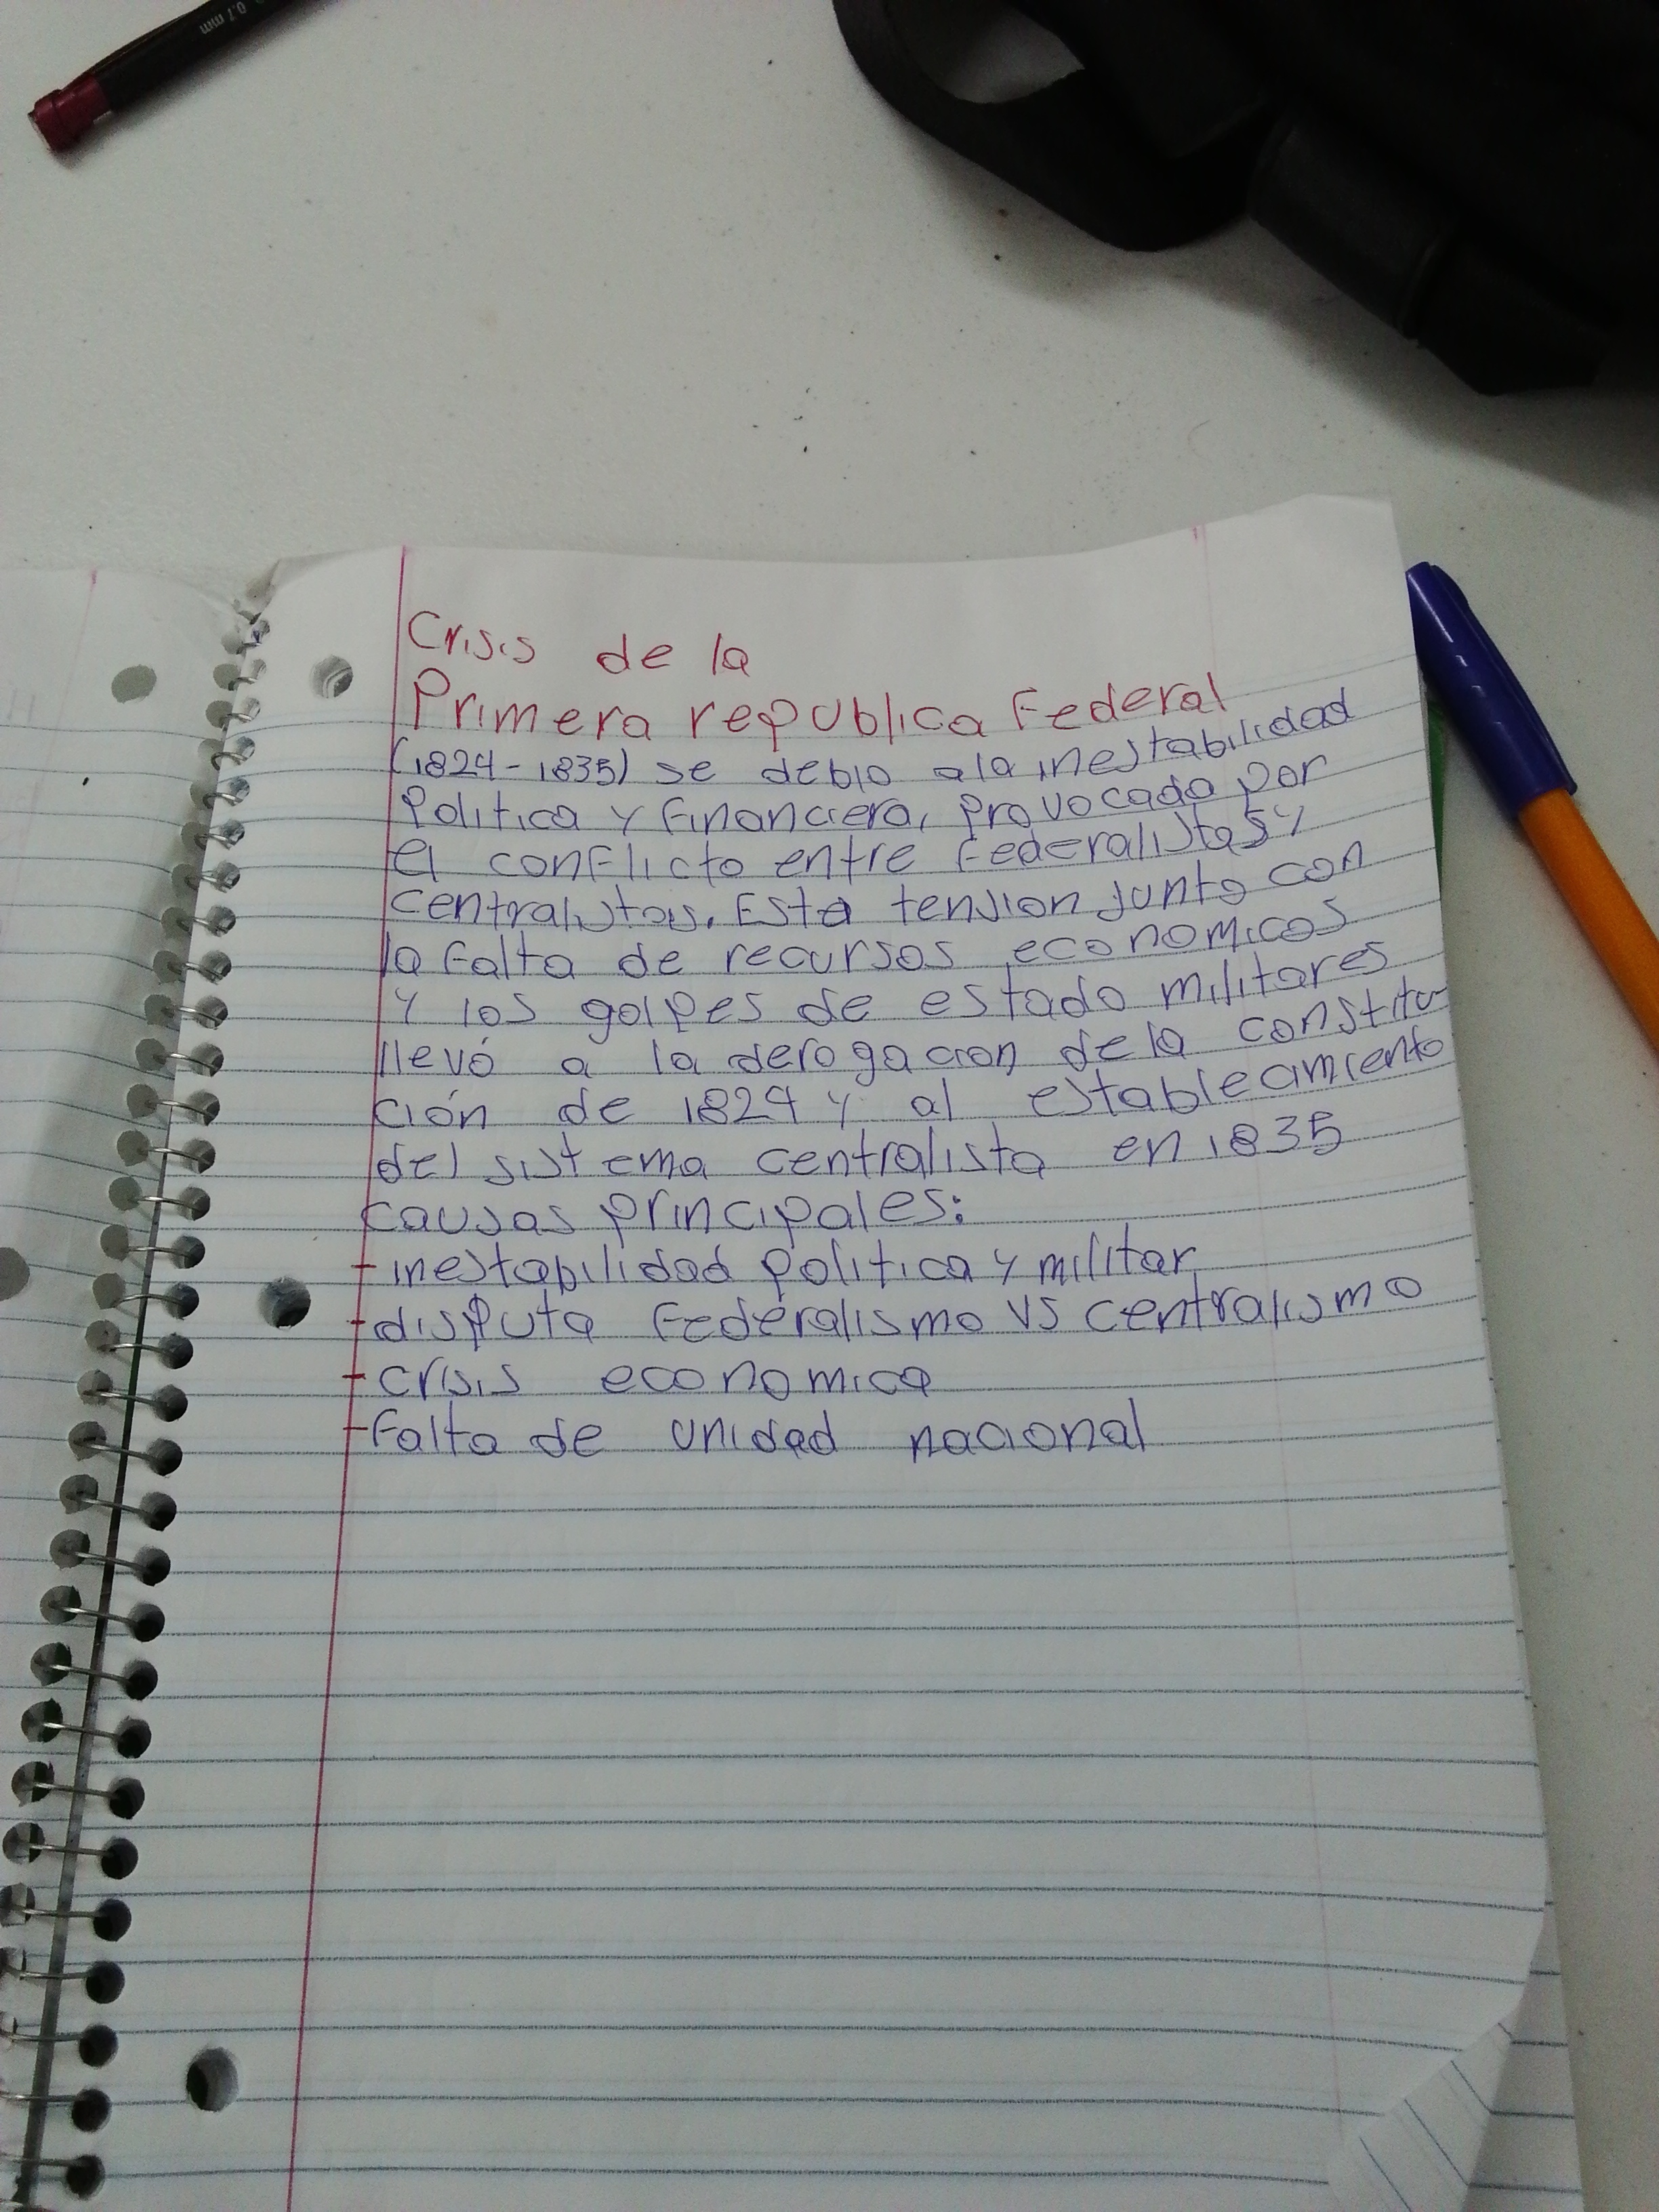 0.7 mm
Crisis de la
Primera republica Federal
(1824-1835) se debio a la inestabilidad
Politica y Financiera, provocada por
el conflicto entre Federalistas y
centralistas. Esta tension junto con
la falta de recursos economicos
y los golpes de estado militares
llevó a la derogacion de la constitu-
ción de 1824 y al establecimiento
del sistema centralista en 1835
causas principales:
- inestabilidad politica y militar
- disputa Federalismo vs centralismo
- crisis economica
- falta de unidad nacional